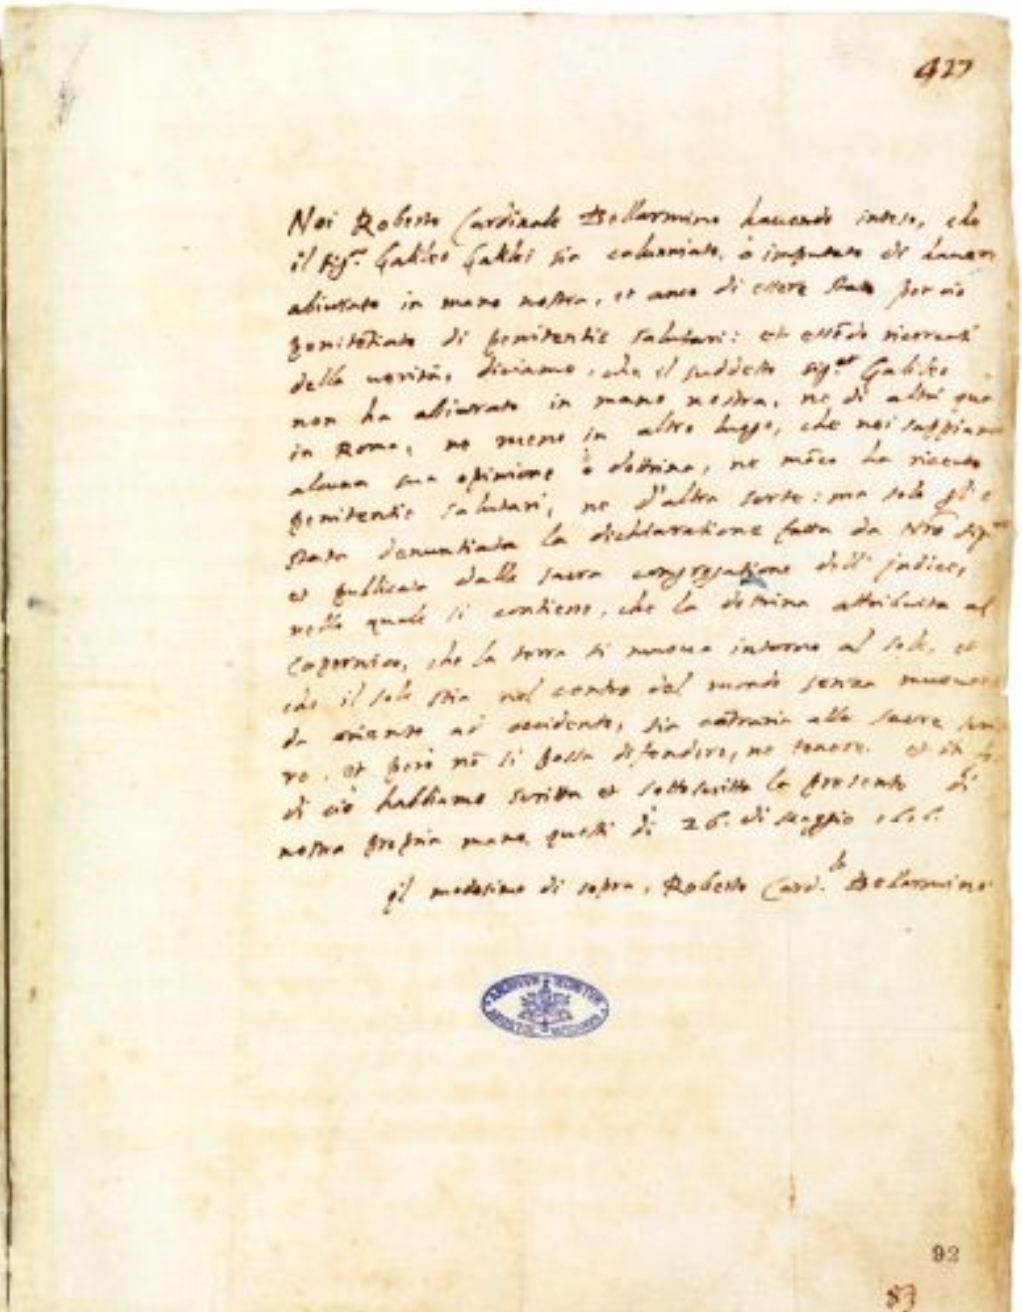 427
Noi Roberto Cardinale Bellarmino havendo inteso, che
il sig.r Galileo Galilei sia calunniato, o imputato di havere
abiurato in mano nostra, et anco di essere stato per ciò
penitētiato di penitentie salutari: et essēdo ricercati
della verità, diciamo, che il suddetto sig.or Galileo
non ha abiurato in mano nostra, ne di altri qua
in Roma, ne meno in altro luogo, che noi sappiamo
alcuna sua opinione o dottrina, ne māco ha riceuto
penitentie salutari, ne d'altra sorte: ma solo gl'è
stata denuntiata la dichiaratione fatta da Nrō Sig.re
et publicata dalla sacra congregatione dell' indice,
nella quale si contiene, che la dottrina attribuita al
Copernico, che la terra si muova intorno al sole, et
che il sole stia nel centro del mondo senza muoversi
da oriente ad occidente, sia cōtraria alle sacre
et però nō si possa difendere, ne tenere. et in
di ciò habbiamo scritta et sottoscritta la presente di
nostra propria mano, questi dì 26. di Maggio 1616.
Il medesimo di sopra, Roberto Card.le Bellarmino
92